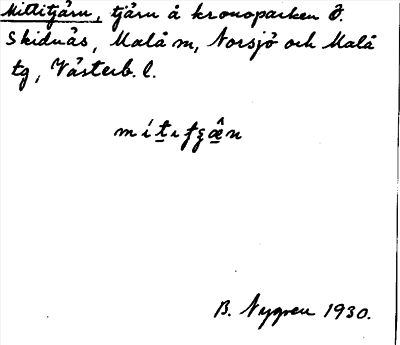 Mittitjärn, tjärn å kronoparken Ö.
Skidnäs, Malå m, Norsjö och Malå
tg, Västerb. l.
B. Nygren 1930.